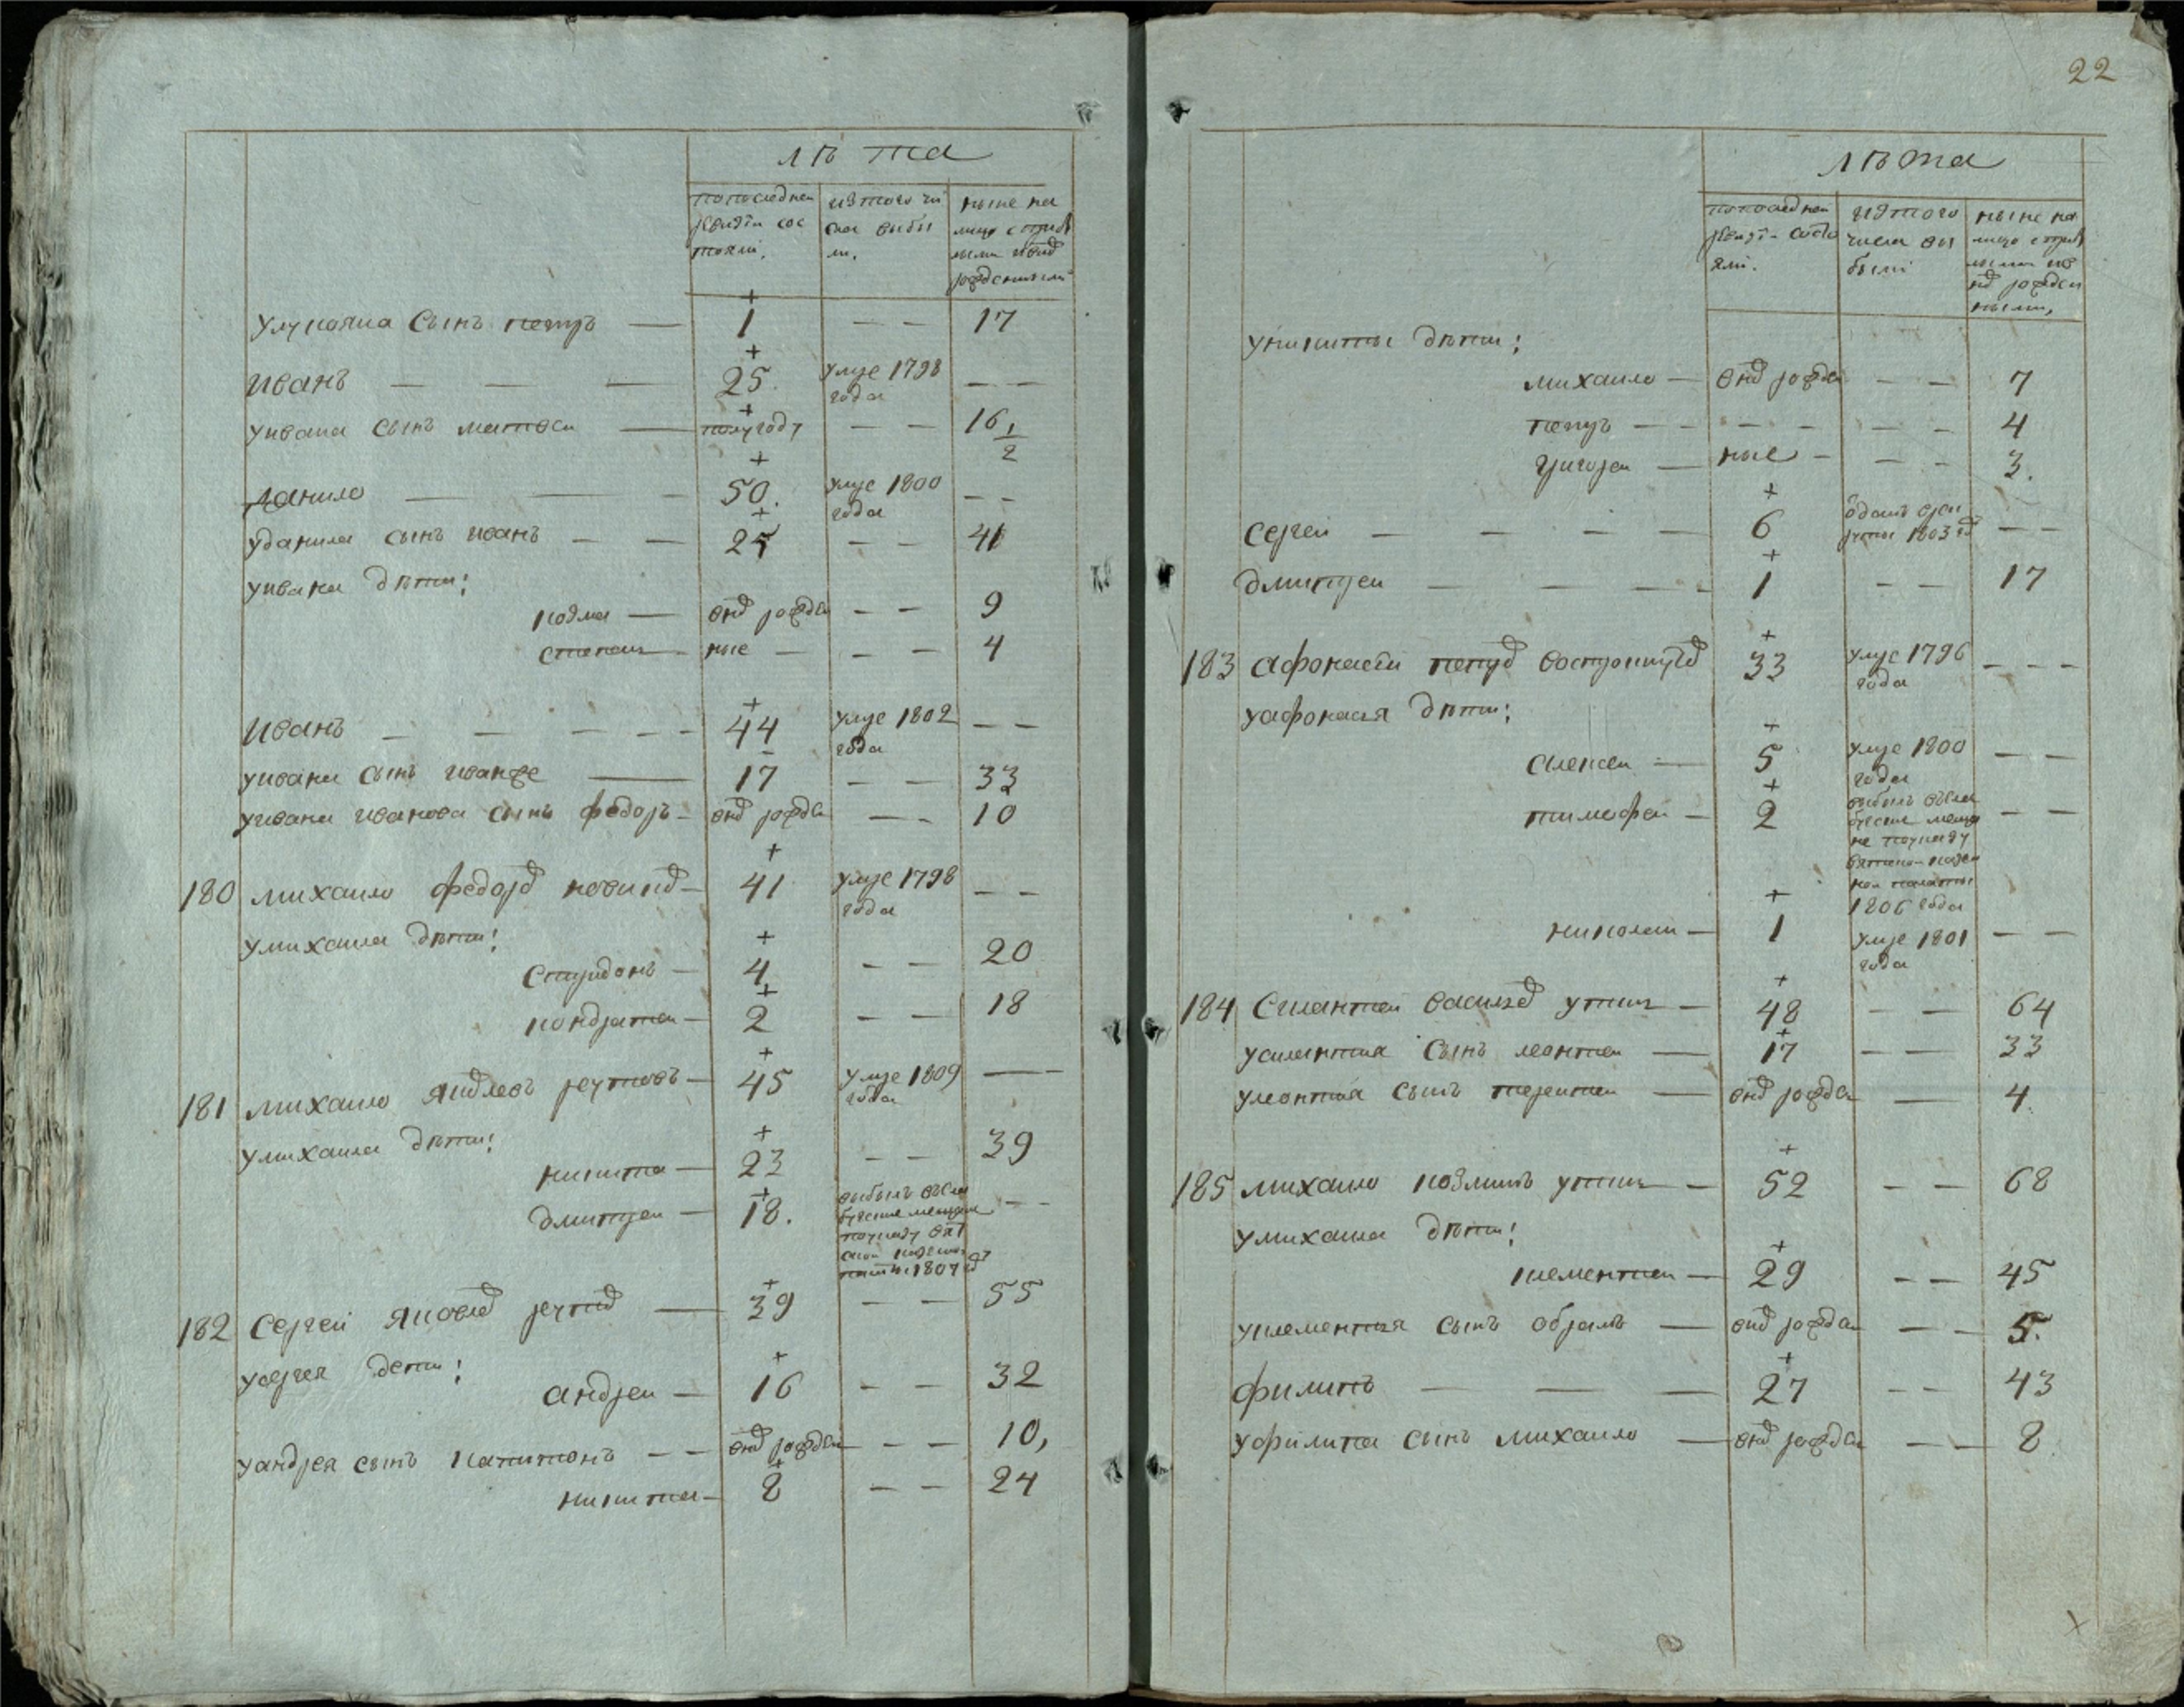 лѣта
попоследнеи ревизiи состояли.
изтого числа выбыли.
ныне налицо с прибылыми и внов рожденными
улукояна сынъ петръ — 1 — — 17
иванъ — — — 25. умре 1798 года — —
уивана сынъ матвеи — полугоду — — 16 1/2
данило — — — 50. умре 1800 года — —
уданила сынъ иванъ — — 25 — — 41
уивана дѣти:
козма — внов рожден — — 9
степанъ — ные — — — 4
иванъ — — — — — 44 умре 1802 года — —
уивана сынъ иванже — 17 — — 33
уивана иванова сынъ федоръ — внов рожден — — 10
180 михаило федоров новиков — 41 умре 1798 года — —
умихаила дѣти:
спиридонъ — 4 — — 20
кондратеи — 2 — — 18
181 михаило яковлевъ реутовъ — 45 умре 1809 года —
умихаила дѣти:
никита — 23 — — 39
дмитреи — 18. выбылъ — —
182 сергеи яковлев реутов — 39 — — 55
усергея дети:
андреи — 16 — — 32
уандрея сынъ капитонъ — — внов рожден — — 10,
никита — 8 — — 24
22
лѣта
попоследнеи ревизiи состояли.
изтого числа выбыли
ныне налицо с прибылыми и внов рожденными,
уникиты дѣти:
михаило — внов рожден — — 7
петръ — — — — — — 4
григореи — ные — — — 3.
сергеи — — — — 6 одатъ врекруты 1803 год — —
дмитреи — — — — 1 — — 17
183 афонасеи петров востроутов 33 умре 1796 года — — —
уафонасья дѣти:
алексеи — 5 умре 1800 года — —
тимофеи — 2 выбылъ мещане поуказу вятской казенной палаты 1806 года — —
николаи — 1 умре 1801 года — —
184 силантеи васильев утинъ — 48 — — 64
усилантия сынъ леонтеи — 17 — — 33
улеонтия сынъ терентеи — внов рожден — 4.
185 михаило козминъ утинъ — 52 — — 68
умихаила дѣти:
клементеи — 29 — — 45
уклементия сынъ обрамъ — внов рожден — — 5.
филипъ — — — 27 — — 43
уфилипа сынъ михаило — внов рожден — — 8